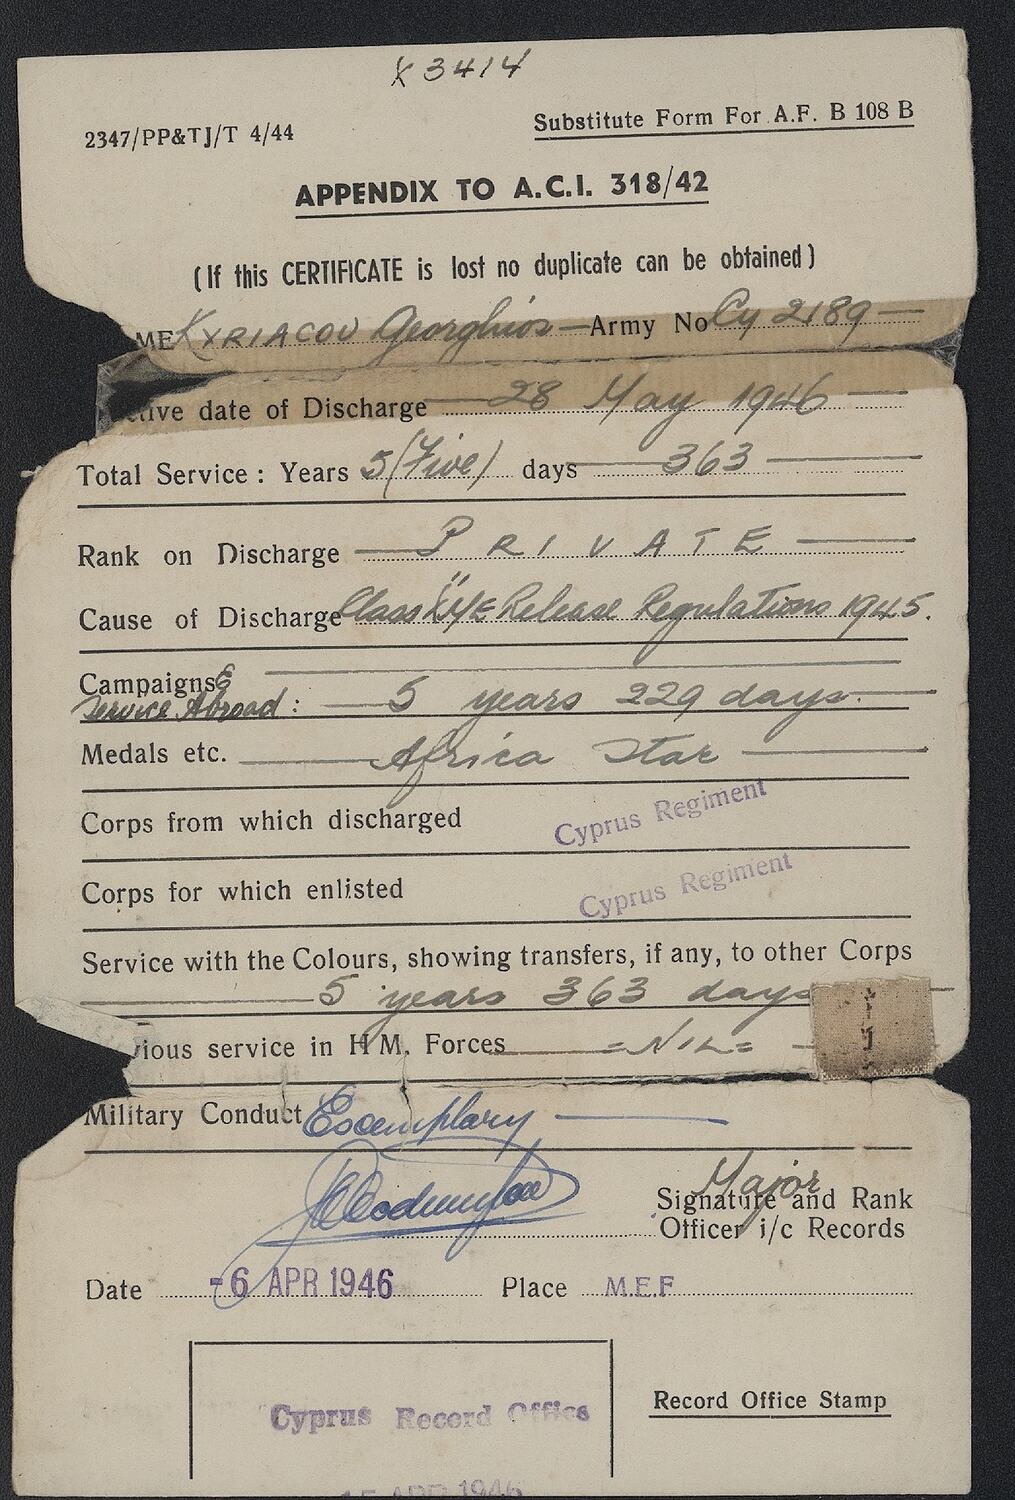 X 3414
2347/PP&TJ/T 4/44
Substitute Form For A.F. B 108 B
APPENDIX TO A.C.I. 318/42
(If this CERTIFICATE is lost no duplicate can be obtained)
ME KYRIACOU Georghios — Army No Cy 2189 —
ctive date of Discharge — 28 May 1946 —
Total Service : Years 5 (Five) days — 363 —
Rank on Discharge — PRIVATE —
Cause of Discharge Class "A" Release Regulations 1945.
Campaigns &
Service Abroad : — 5 years 229 days. —
Medals etc. — Africa Star —
Corps from which discharged Cyprus Regiment
Corps for which enlisted Cyprus Regiment
Service with the Colours, showing transfers, if any, to other Corps
— 5 years 363 days
vious service in H.M. Forces — = NIL = —
Military Conduct Exemplary —
Major
Signature and Rank
Officer i/c Records
Date -6 APR 1946 Place M.E.F
Cyprus Record Office
Record Office Stamp
15 APR 1946